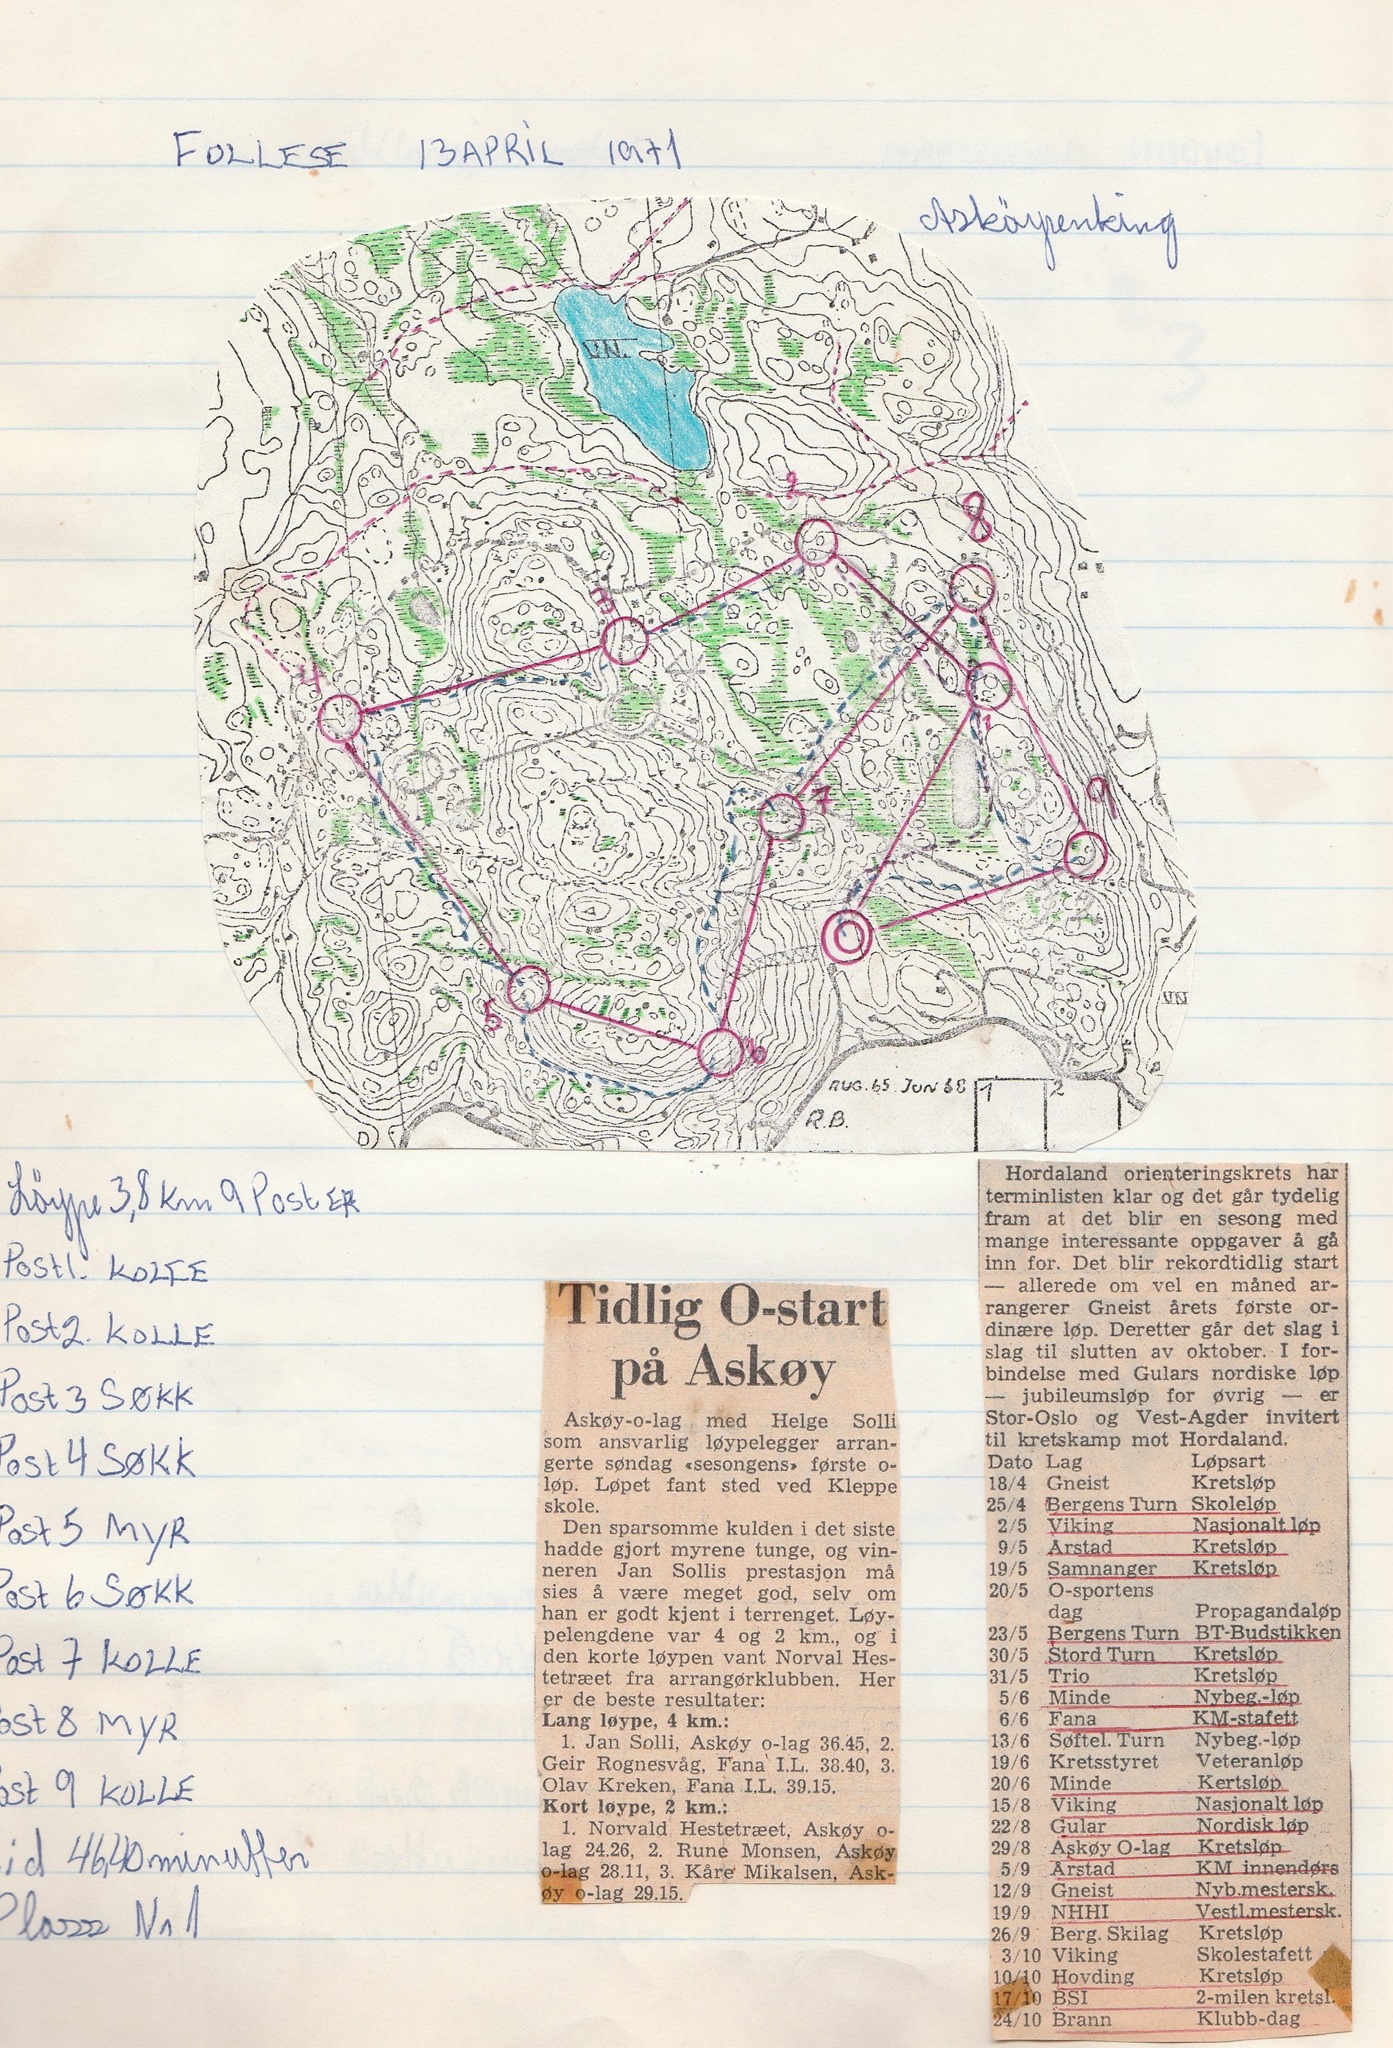 FOLLESE 13 APRIL 1971
VN.
2
8
3
4
1
9
7
5
6
VN
AUG. 65 JUN 68 1 2
R.B.
Löype 3,8 km 9 Poster
Post 1. KOLLE
Post 2. KOLLE
Post 3 SØKK
Post 4 SØKK
Post 5 MYR
Post 6 SØKK
Post 7 KOLLE
ost 8 MYR
ost 9 KOLLE
id 46,40 minutter
Plass Nr 1
Tidlig O-start
på Askøy
Askøy-o-lag med Helge Solli
som ansvarlig løypelegger arran-
gerte søndag «sesongens» første o-
løp. Løpet fant sted ved Kleppe
skole.
Den sparsomme kulden i det siste
hadde gjort myrene tunge, og vin-
neren Jan Sollis prestasjon må
sies å være meget god, selv om
han er godt kjent i terrenget. Løy-
pelengdene var 4 og 2 km., og i
den korte løypen vant Norval Hes-
tetræet fra arrangørklubben. Her
er de beste resultater:
Lang løype, 4 km.:
1. Jan Solli, Askøy o-lag 36.45, 2.
Geir Rognesvåg, Fana I.L. 38.40, 3.
Olav Kreken, Fana I.L. 39.15.
Kort løype, 2 km.:
1. Norvald Hestetræet, Askøy o-
lag 24.26, 2. Rune Monsen, Askøy
o-lag 28.11, 3. Kåre Mikalsen, Ask-
øy o-lag 29.15.
Hordaland orienteringskrets har
terminlisten klar og det går tydelig
fram at det blir en sesong med
mange interessante oppgaver å gå
inn for. Det blir rekordtidlig start
— allerede om vel en måned ar-
rangerer Gneist årets første or-
dinære løp. Deretter går det slag i
slag til slutten av oktober. I for-
bindelse med Gulars nordiske løp
— jubileumsløp for øvrig — er
Stor-Oslo og Vest-Agder invitert
til kretskamp mot Hordaland.
Dato Lag Løpsart
18/4 Gneist Kretsløp
25/4 Bergens Turn Skoleløp
2/5 Viking Nasjonalt løp
9/5 Årstad Kretsløp
19/5 Samnanger Kretsløp
20/5 O-sportens
dag Propagandaløp
23/5 Bergens Turn BT-Budstikken
30/5 Stord Turn Kretsløp
31/5 Trio Kretsløp
5/6 Minde Nybeg.-løp
6/6 Fana KM-stafett
13/6 Søftel. Turn Nybeg.-løp
19/6 Kretsstyret Veteranløp
20/6 Minde Kertsløp
15/8 Viking Nasjonalt løp
22/8 Gular Nordisk løp
29/8 Askøy O-lag Kretsløp
5/9 Årstad KM innendørs
12/9 Gneist Nyb.mestersk.
19/9 NHHI Vestl.mestersk.
26/9 Berg. Skilag Kretsløp
3/10 Viking Skolestafett
10/10 Hovding Kretsløp
17/10 BSI 2-milen kretsl.
24/10 Brann Klubb-dag